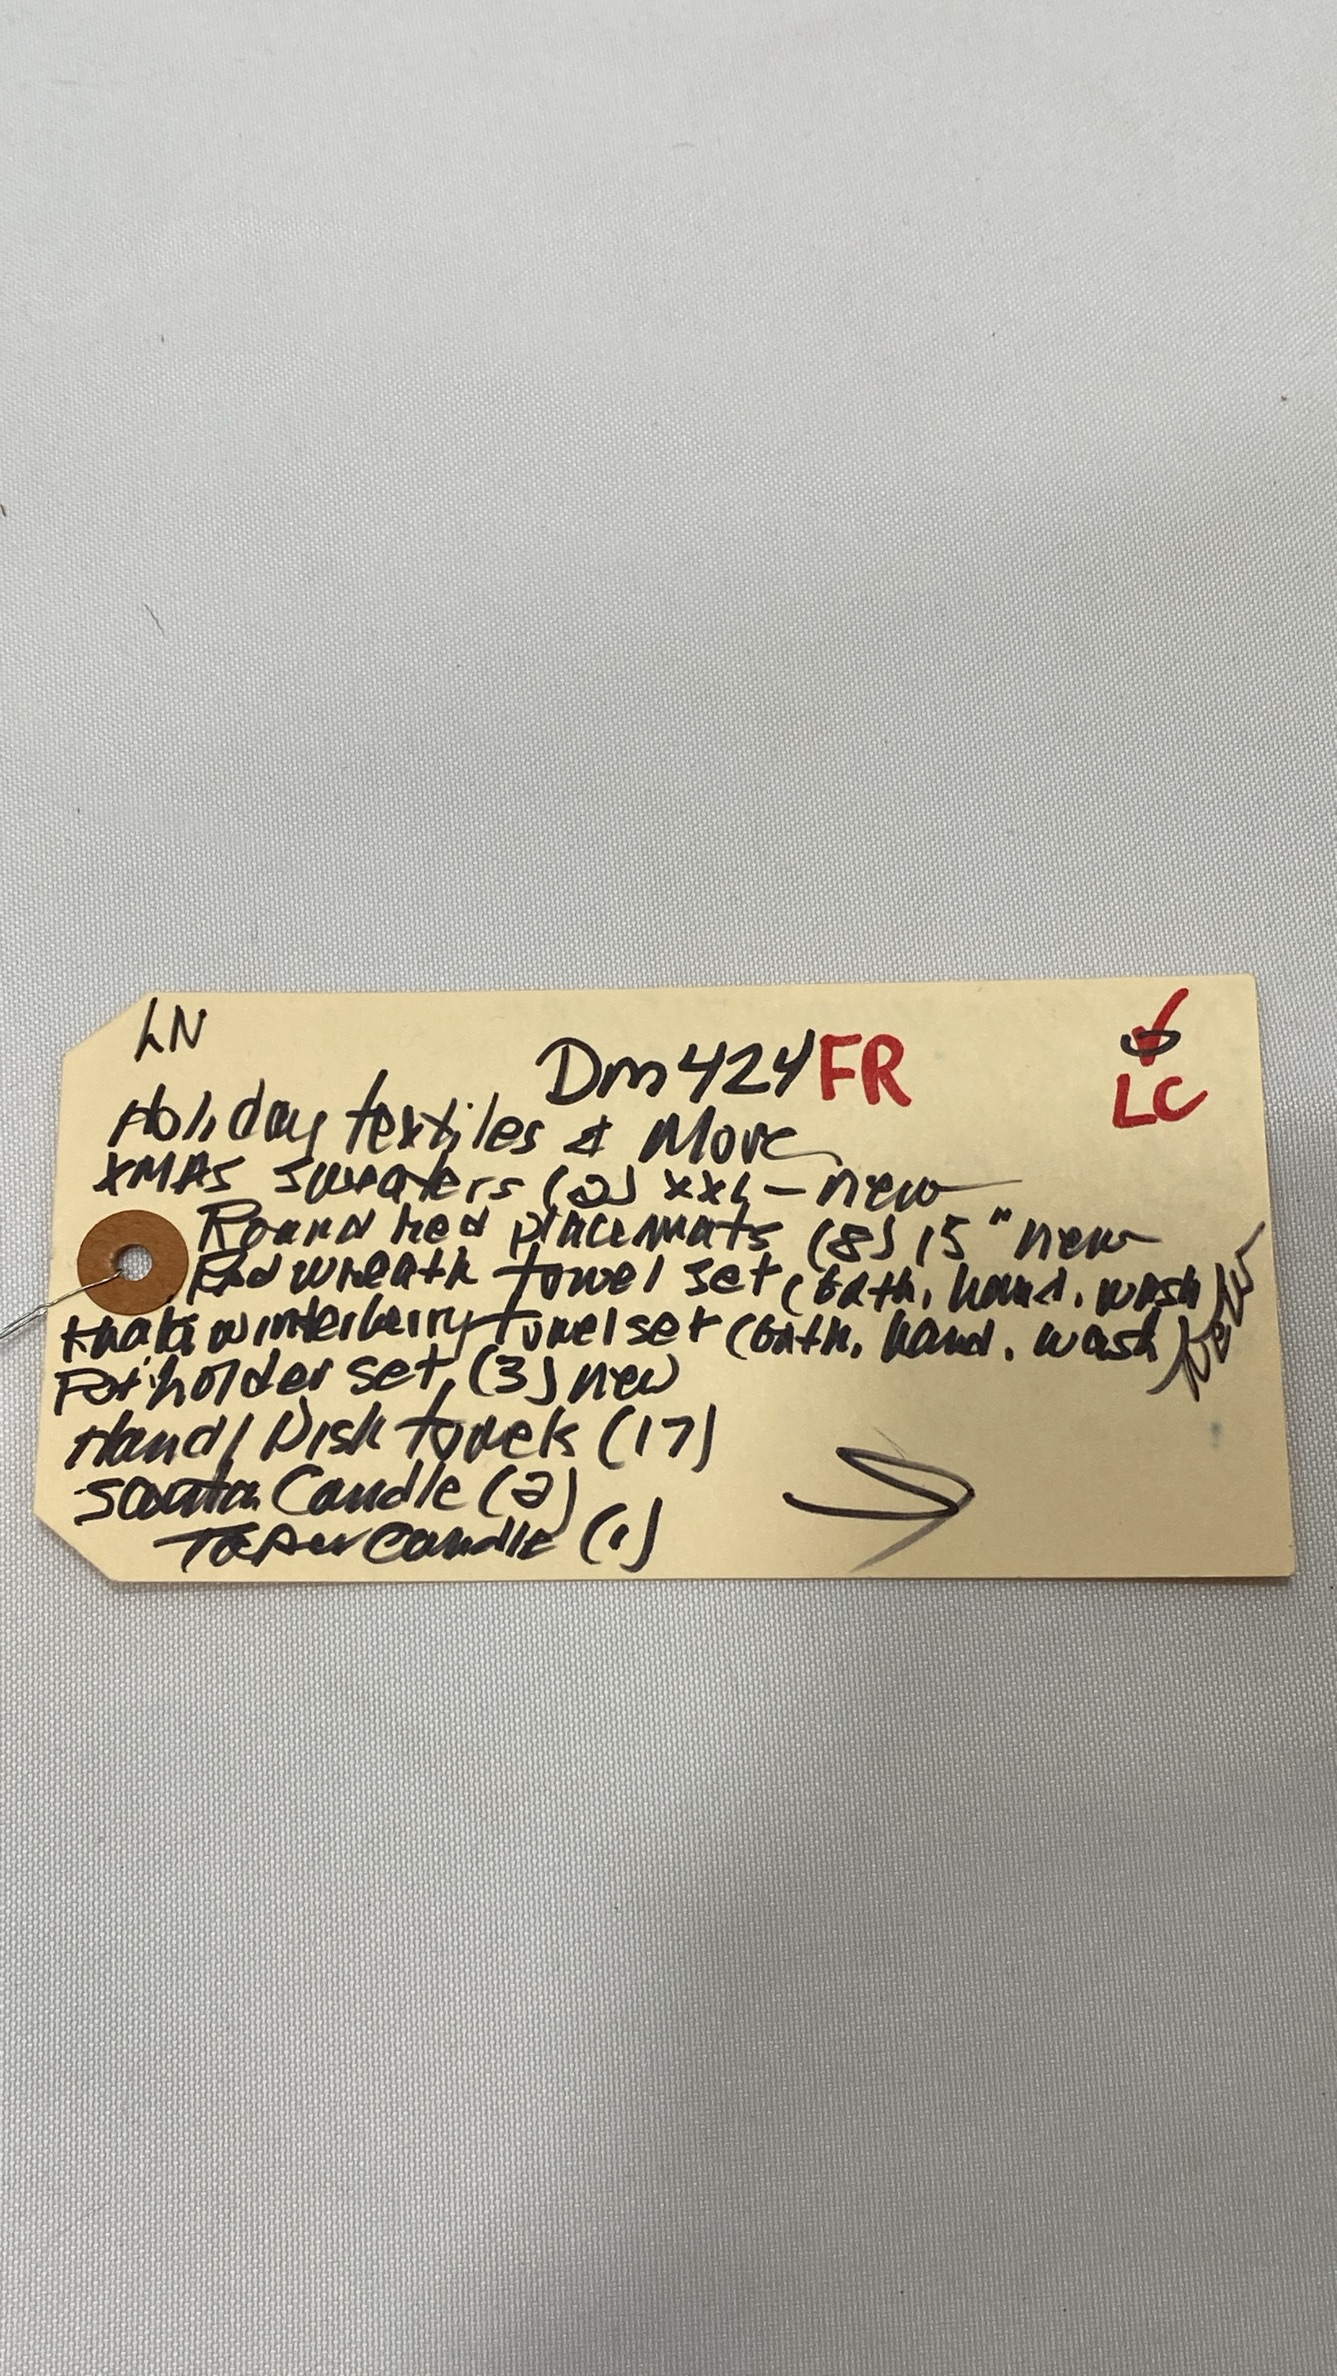 LN
Dm424FR
LC
Holiday textiles & More
XMAS sweaters (2) XXL - new
Round red placemats (8) 15" new
Red wreath towel set (bath, hand, wash
Khaki winterberry towel set (bath, hand, wash) New
Potholder set, (3) new
Hand/Dish towels (17)
Santa Candle (2)
Taper candle (1)